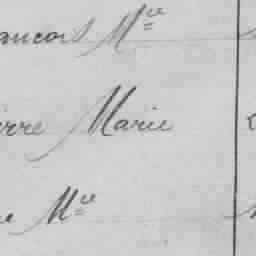 ancois M^ie
ierre Marie
e M^ie